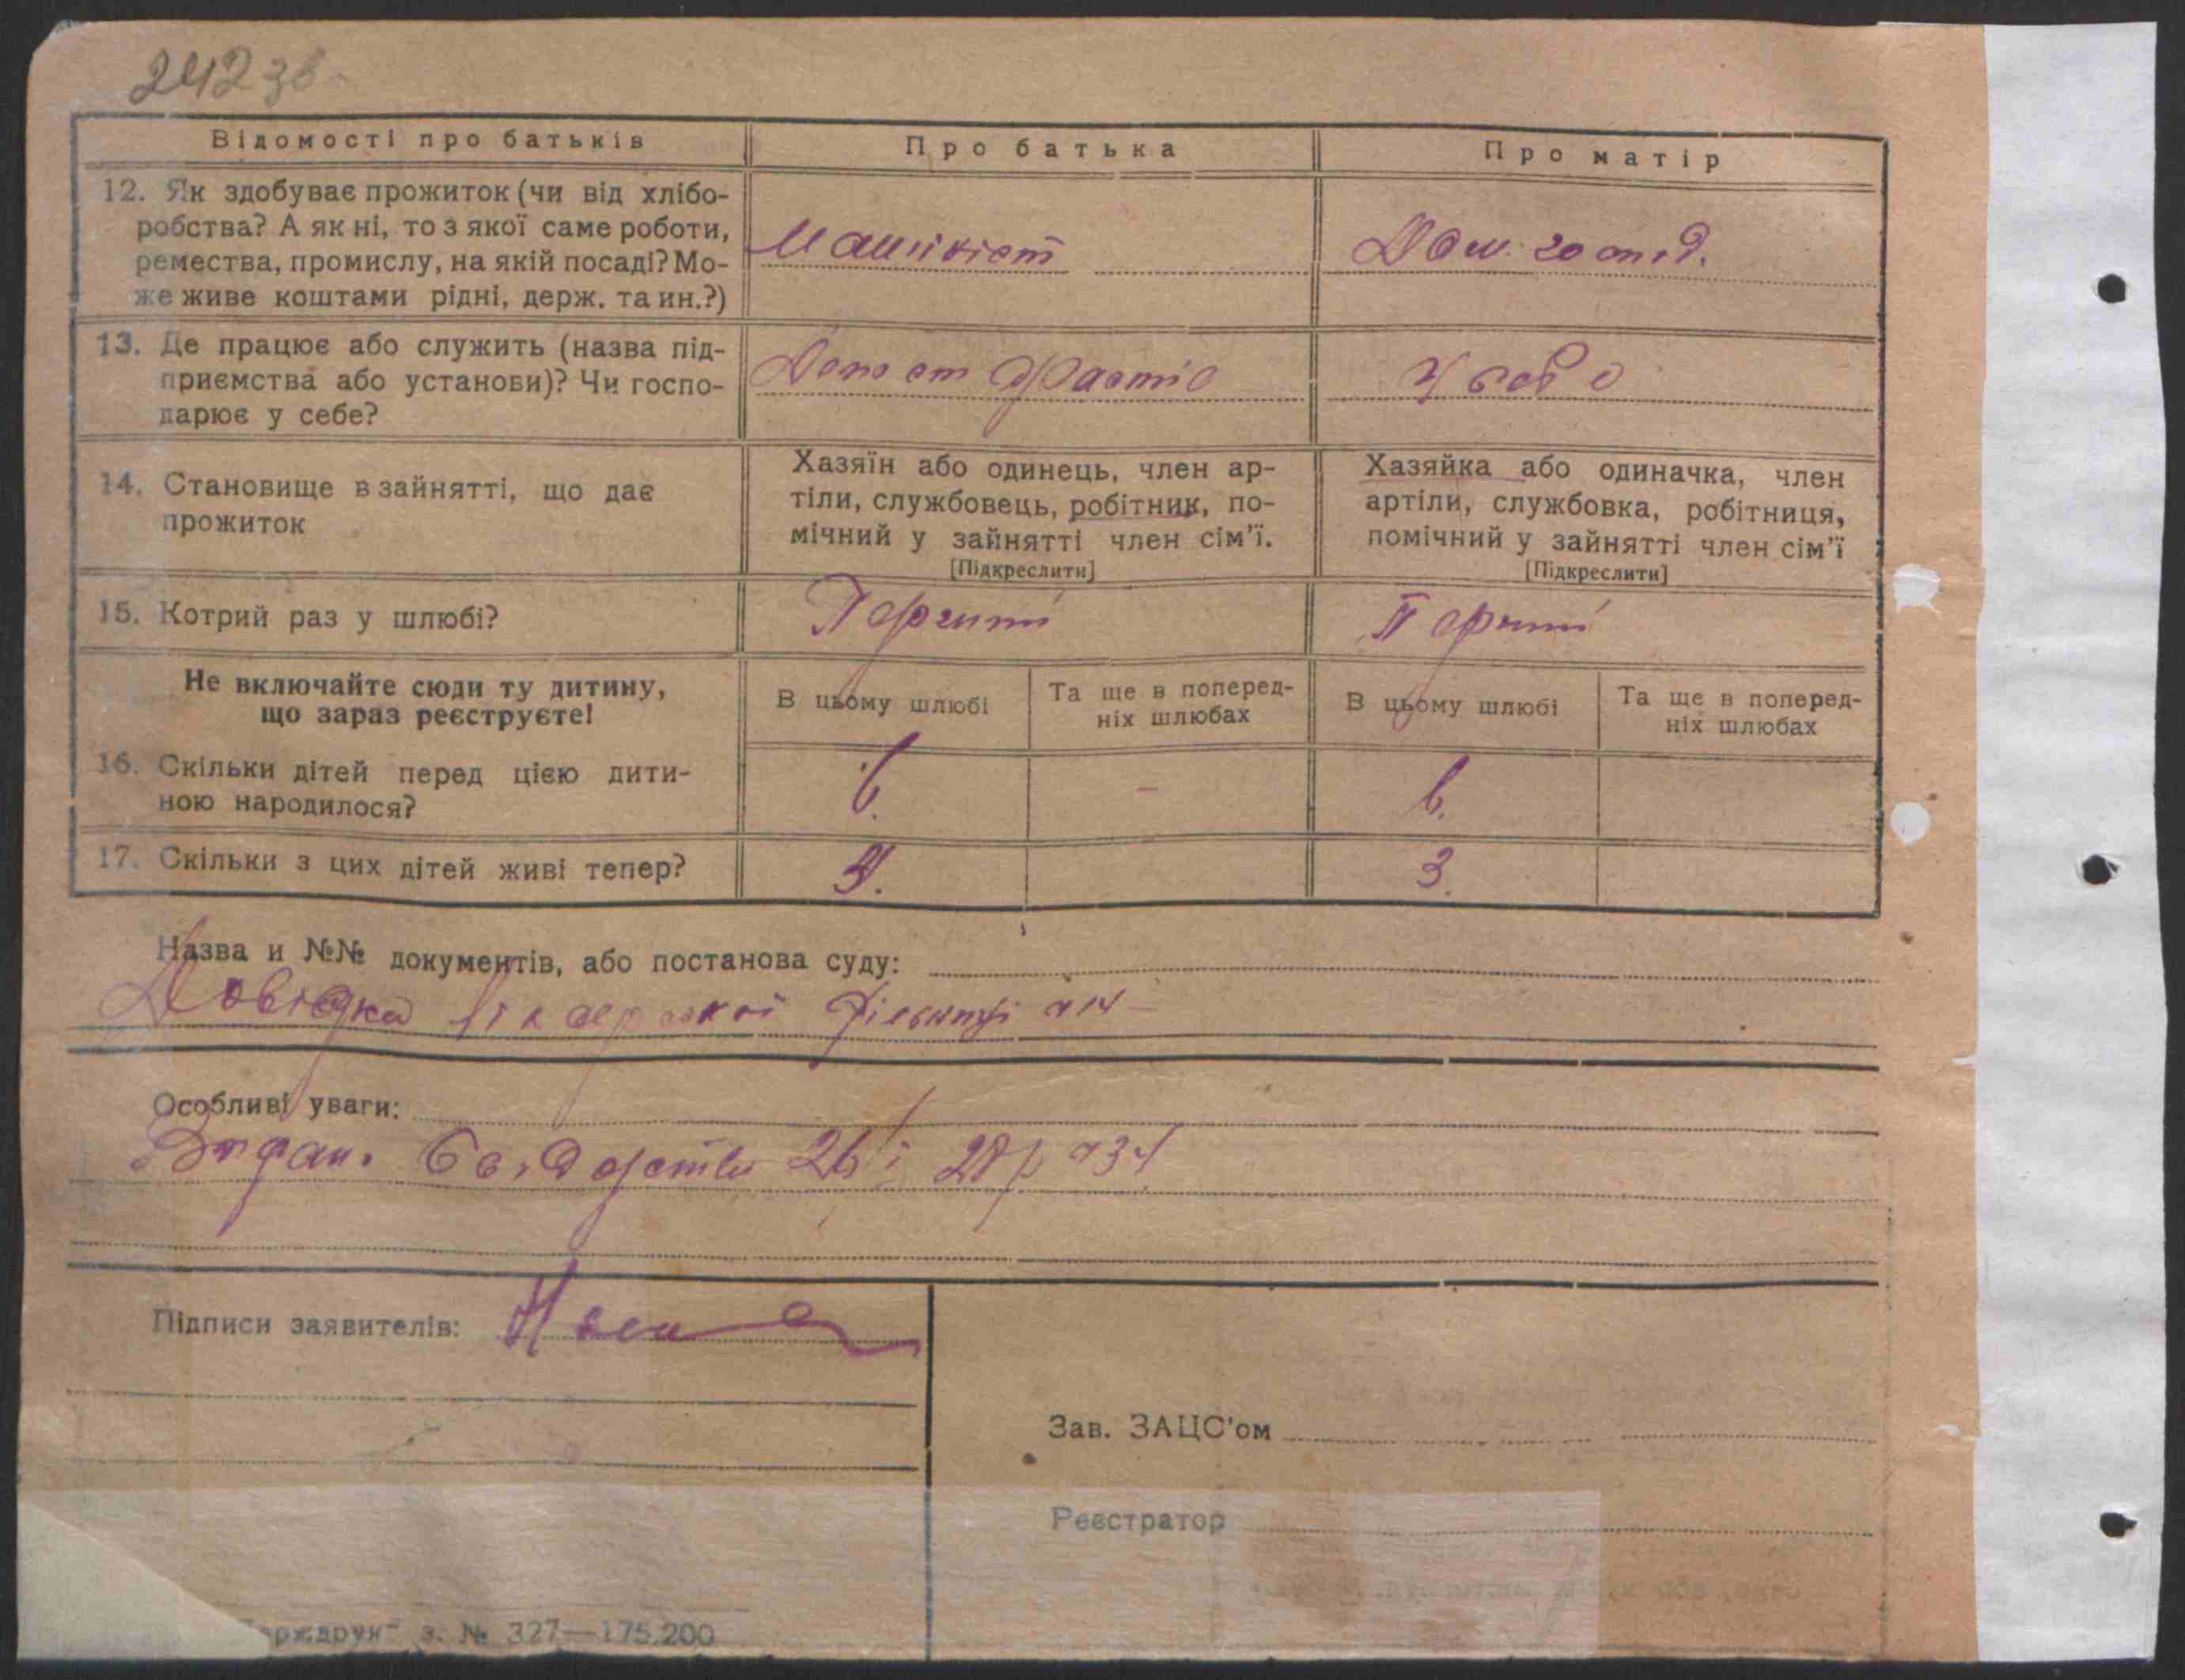 242 зв.
Відомості про батьків
Про батька
Про матір
12. Як здобуває прожиток (чи від хлібо-
робства? А як ні, то з якої саме роботи,
ремества, промислу, на якій посаді? Мо-
же живе коштами рідні, держ. та ин.?)
Машиніст
Дом. господ.
13. Де працює або служить (назва під-
приємства або установи)? Чи госпо-
дарює у себе?
Депо ст Фастів
У себе
14. Становище в зайнятті, що дає
прожиток
Хазяїн або одинець, член ар-
тіли, службовець, робітник, по-
мічний у зайнятті член сім'ї.
[Підкреслити]
Хазяйка або одиначка, член
артіли, службовка, робітниця,
помічний у зайнятті член сім'ї
[Підкреслити]
15. Котрий раз у шлюбі?
Перший
Перший
Не включайте сюди ту дитину,
що зараз реєструєте!
В цьому шлюбі
Та ще в поперед-
ніх шлюбах
В цьому шлюбі
Та ще в поперед-
ніх шлюбах
16. Скільки дітей перед цією дити-
ною народилося?
6.
-
6.
17. Скільки з цих дітей живі тепер?
3.
3.
Назва и №№ документів, або постанова суду:
Довідка
Особливі уваги:
26/
Підписи заявителів:
Зав. ЗАЦС'ом
Реєстратор
з. № 327—175.200